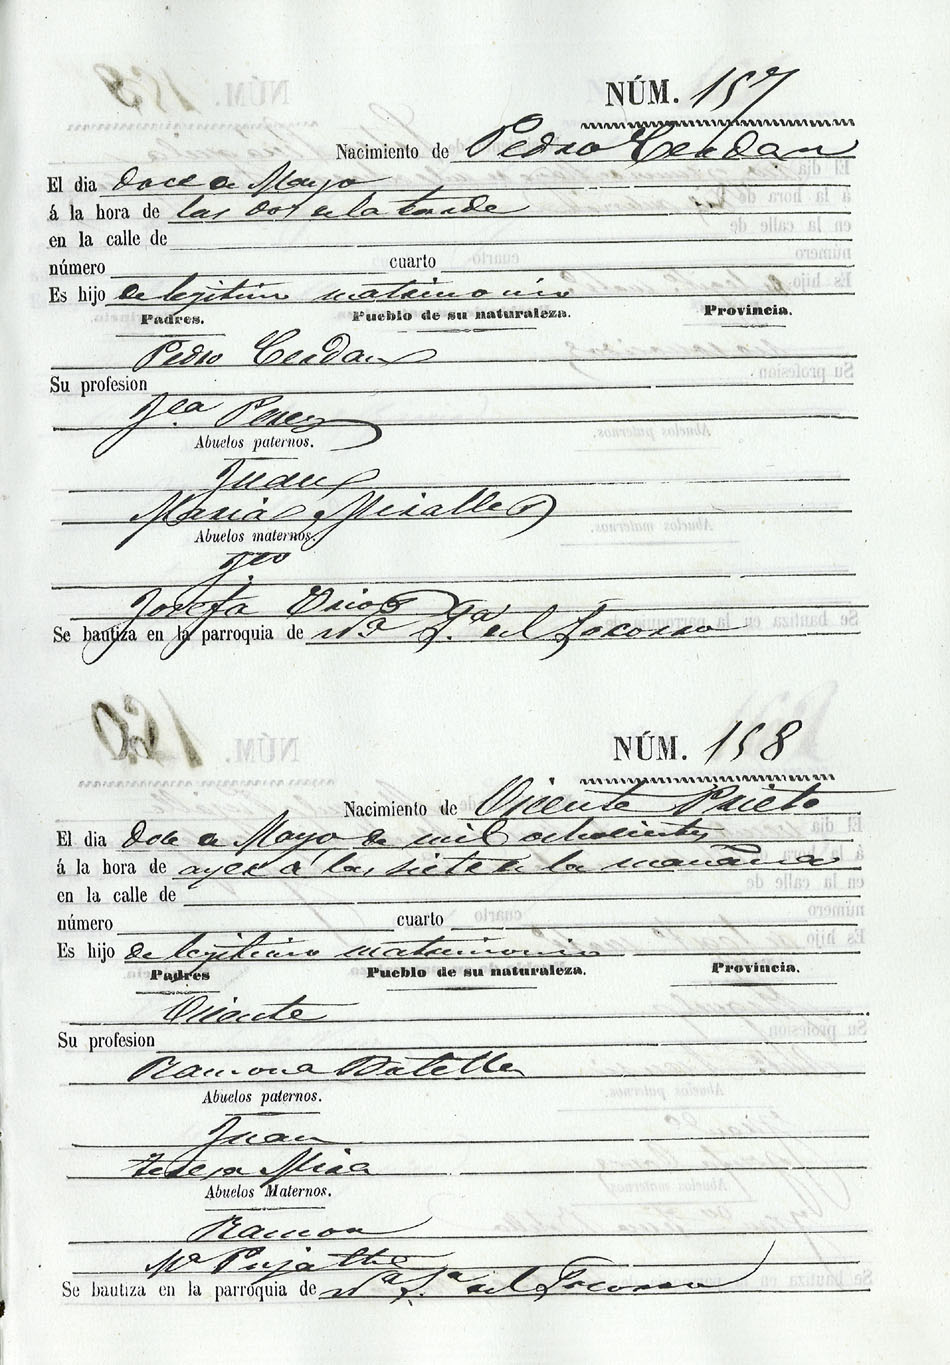 NÚM. 157
Nacimiento de Pedro Cerdan
El dia doce de Mayo
á la hora de las dos de la tarde
en la calle de
número cuarto
Es hijo de legitimo matrimonio
Padres. Pueblo de su naturaleza. Provincia.
Pedro Cerdan
Su profesion
Fca Perez
Abuelos paternos.
Juan
Maria Miralles
Abuelos maternos.
Fco
Josefa
Se bautiza en la parroquia de Ntra Sra del Socorro
NÚM. 158
Nacimiento de Vicente Prieto
El dia Doce de Mayo de mil ochocientos
á la hora de ayer á las siete de la mañana
en la calle de
número cuarto
Es hijo de legitimo matrimonio
Padres Pueblo de su naturaleza. Provincia.
Vicente
Su profesion
Ramona Batella
Abuelos paternos.
Juan
Teresa Mira
Abuelos Maternos.
Ramon
Ma
Se bautiza en la parroquia de Na Sa del Socorro